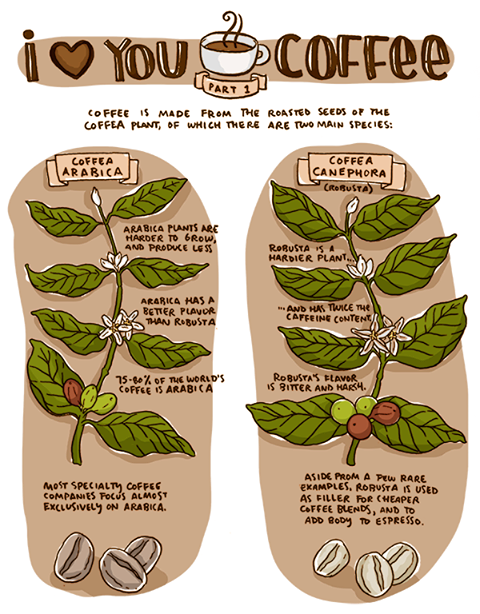 i ♥ YOU COFFEE
PART 1
COFFEE IS MADE FROM THE ROASTED SEEDS OF THE
COFFEA PLANT, OF WHICH THERE ARE TWO MAIN SPECIES:
COFFEA
ARABICA
ARABICA PLANTS ARE
HARDER TO GROW,
AND PRODUCE LESS
ARABICA HAS A
BETTER FLAVOR
THAN ROBUSTA
75-80% OF THE WORLD'S
COFFEE IS ARABICA
MOST SPECIALTY COFFEE
COMPANIES FOCUS ALMOST
EXCLUSIVELY ON ARABICA.
COFFEA
CANEPHORA
(ROBUSTA)
ROBUSTA IS A
HARDIER PLANT...
...AND HAS TWICE THE
CAFFEINE CONTENT.
ROBUSTA'S FLAVOR
IS BITTER AND HARSH.
ASIDE FROM A FEW RARE
EXAMPLES, ROBUSTA IS USED
AS FILLER FOR CHEAPER
COFFEE BLENDS, AND TO
ADD BODY TO ESPRESSO.